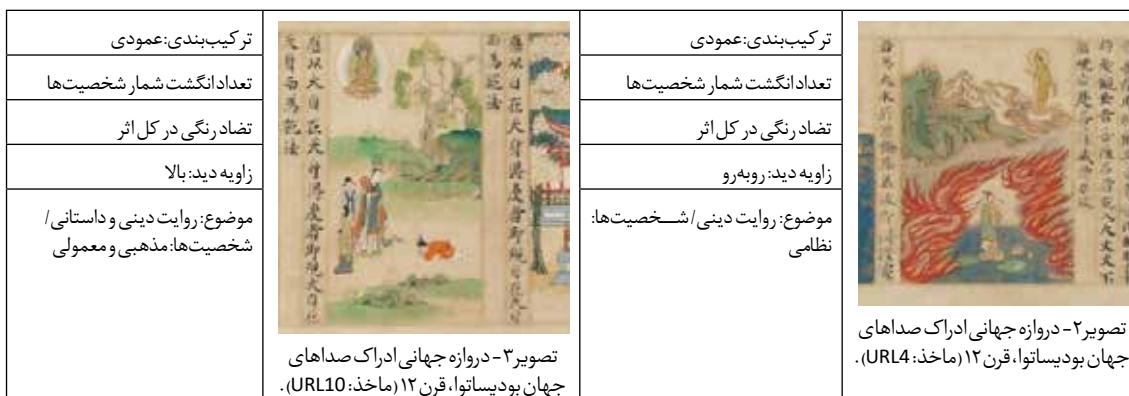 تصویر۲- دروازه جهانی ادراک صداهای
جهان بودیساتوا، قرن ۱۲ (ماخذ: URL4).
ترکیب‌بندی:عمودی
تعداد انگشت شمار شخصیت‌ها
تضاد رنگی در کل اثر
زاویه دید: روبه‌رو
موضوع: روایت دینی/ شخصیت‌ها:
نظامی
應以自在天身得度者即現自在天身
而為說法
應以大自在天身得度者即現大自在
天身而為說法
تصویر۳- دروازه جهانی ادراک صداهای
جهان بودیساتوا، قرن ۱۲ (ماخذ: URL10).
ترکیب‌بندی:عمودی
تعداد انگشت شمار شخصیت‌ها
تضاد رنگی در کل اثر
زاویه دید: بالا
موضوع: روایت دینی و داستانی/
شخصیت‌ها: مذهبی و معمولی